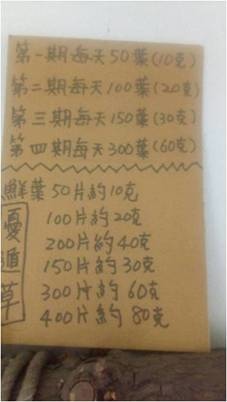 第一期每天50葉(10克)
第二期每天100葉(20克)
第三期每天150葉(30克)
第四期每天300葉(60克)
鮮葉50片約10克
100片約20克
200片約40克
150片約30克
300片約60克
400片約80克
憂遁草